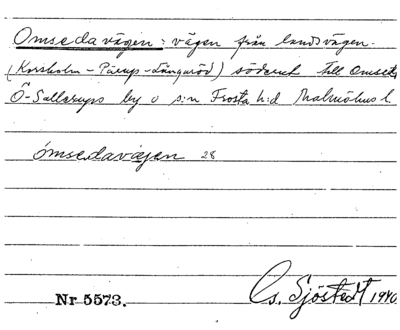 Omsedavägen: vägen från landsvägen.
(Korsholm - Pärup - Långaröd) söderut till Omseda
Ö-Sallerups by o s:n Frosta h:d Malmöhus l.
ómsedavägen 28
Nr 5573.
Cs. Sjöstedt 1940.